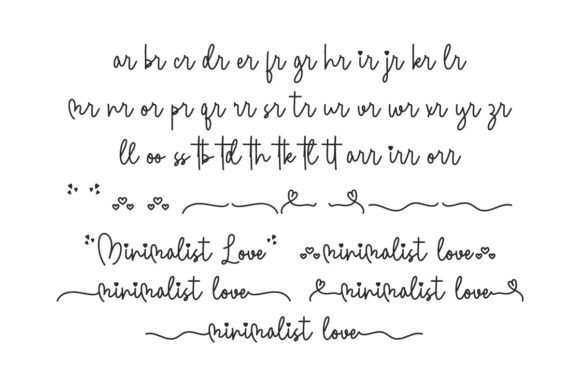 ar br cr dr er fr gr hr ir jr kr lr
mr nr or pr qr rr sr tr ur vr wr xr yr zr
ll oo ss tb td th tk tl tt arr irr orr
Minimalist Love minimalist love
minimalist love minimalist love
minimalist love